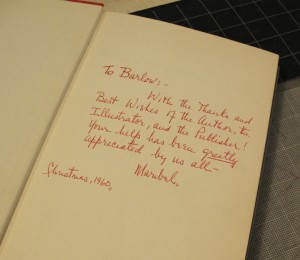 To Barlow:-
With the Thanks and
Best Wishes of the Author, the
Illustrator, and the Publisher!
Your help has been greatly
appreciated by us all-
Christmas, 1960. Maribel.